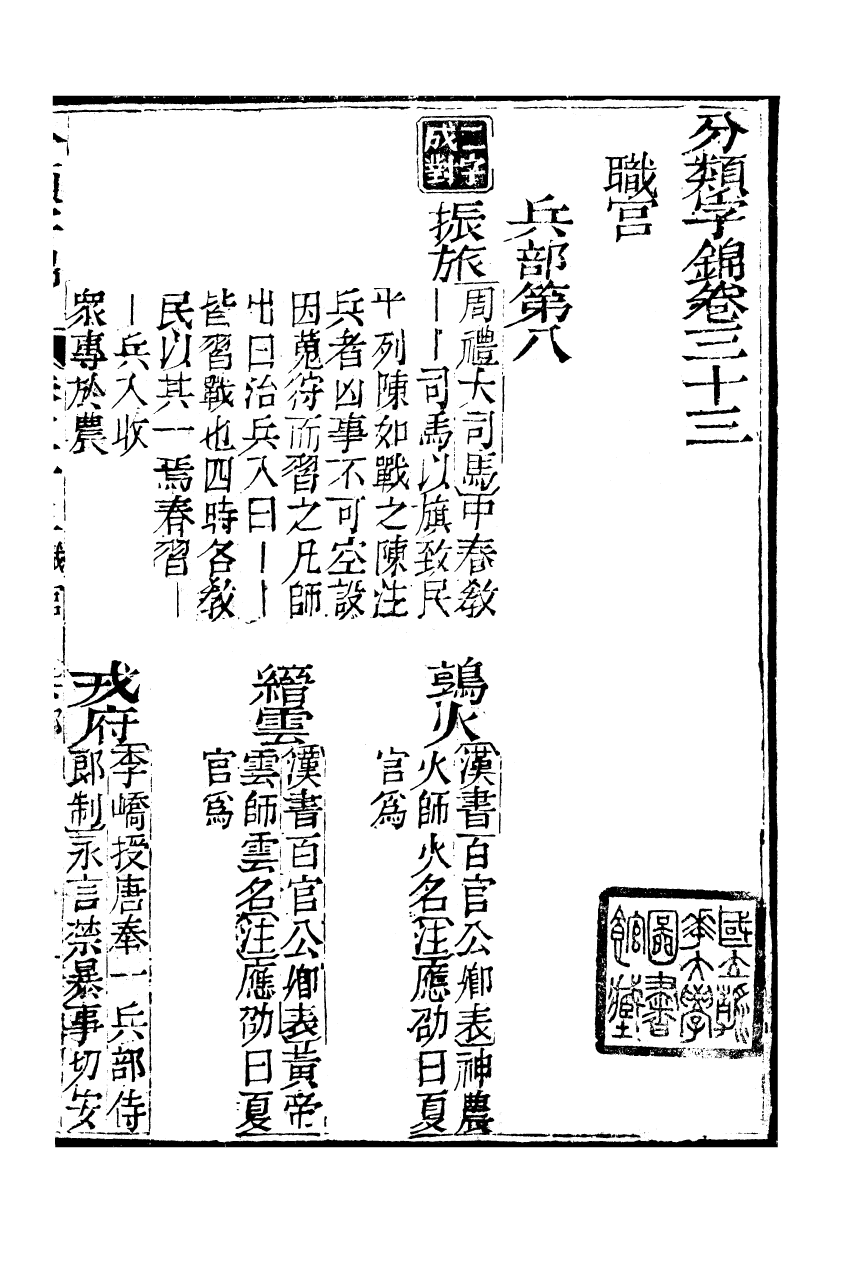 分類字錦卷三十三
職官
兵部第八
二字成對
振旅
周禮大司馬中春敎
｜｜司馬以旗致民
平列陳如戰之陳注
兵者凶事不可空設
因蒐狩而習之凡師
出曰治兵入曰｜｜
皆習戰也四時各敎
民以其一焉春習｜
｜兵入收
衆專於農
鶉火
漢書百官公卿表神農
火師火名注應劭曰夏
官爲
縉雲
漢書百官公卿表黃帝
雲師雲名注應劭曰夏
官爲
戎府
李嶠授唐奉一兵部侍
郎制永言禁暴事切安
國立清華大學圖書館藏